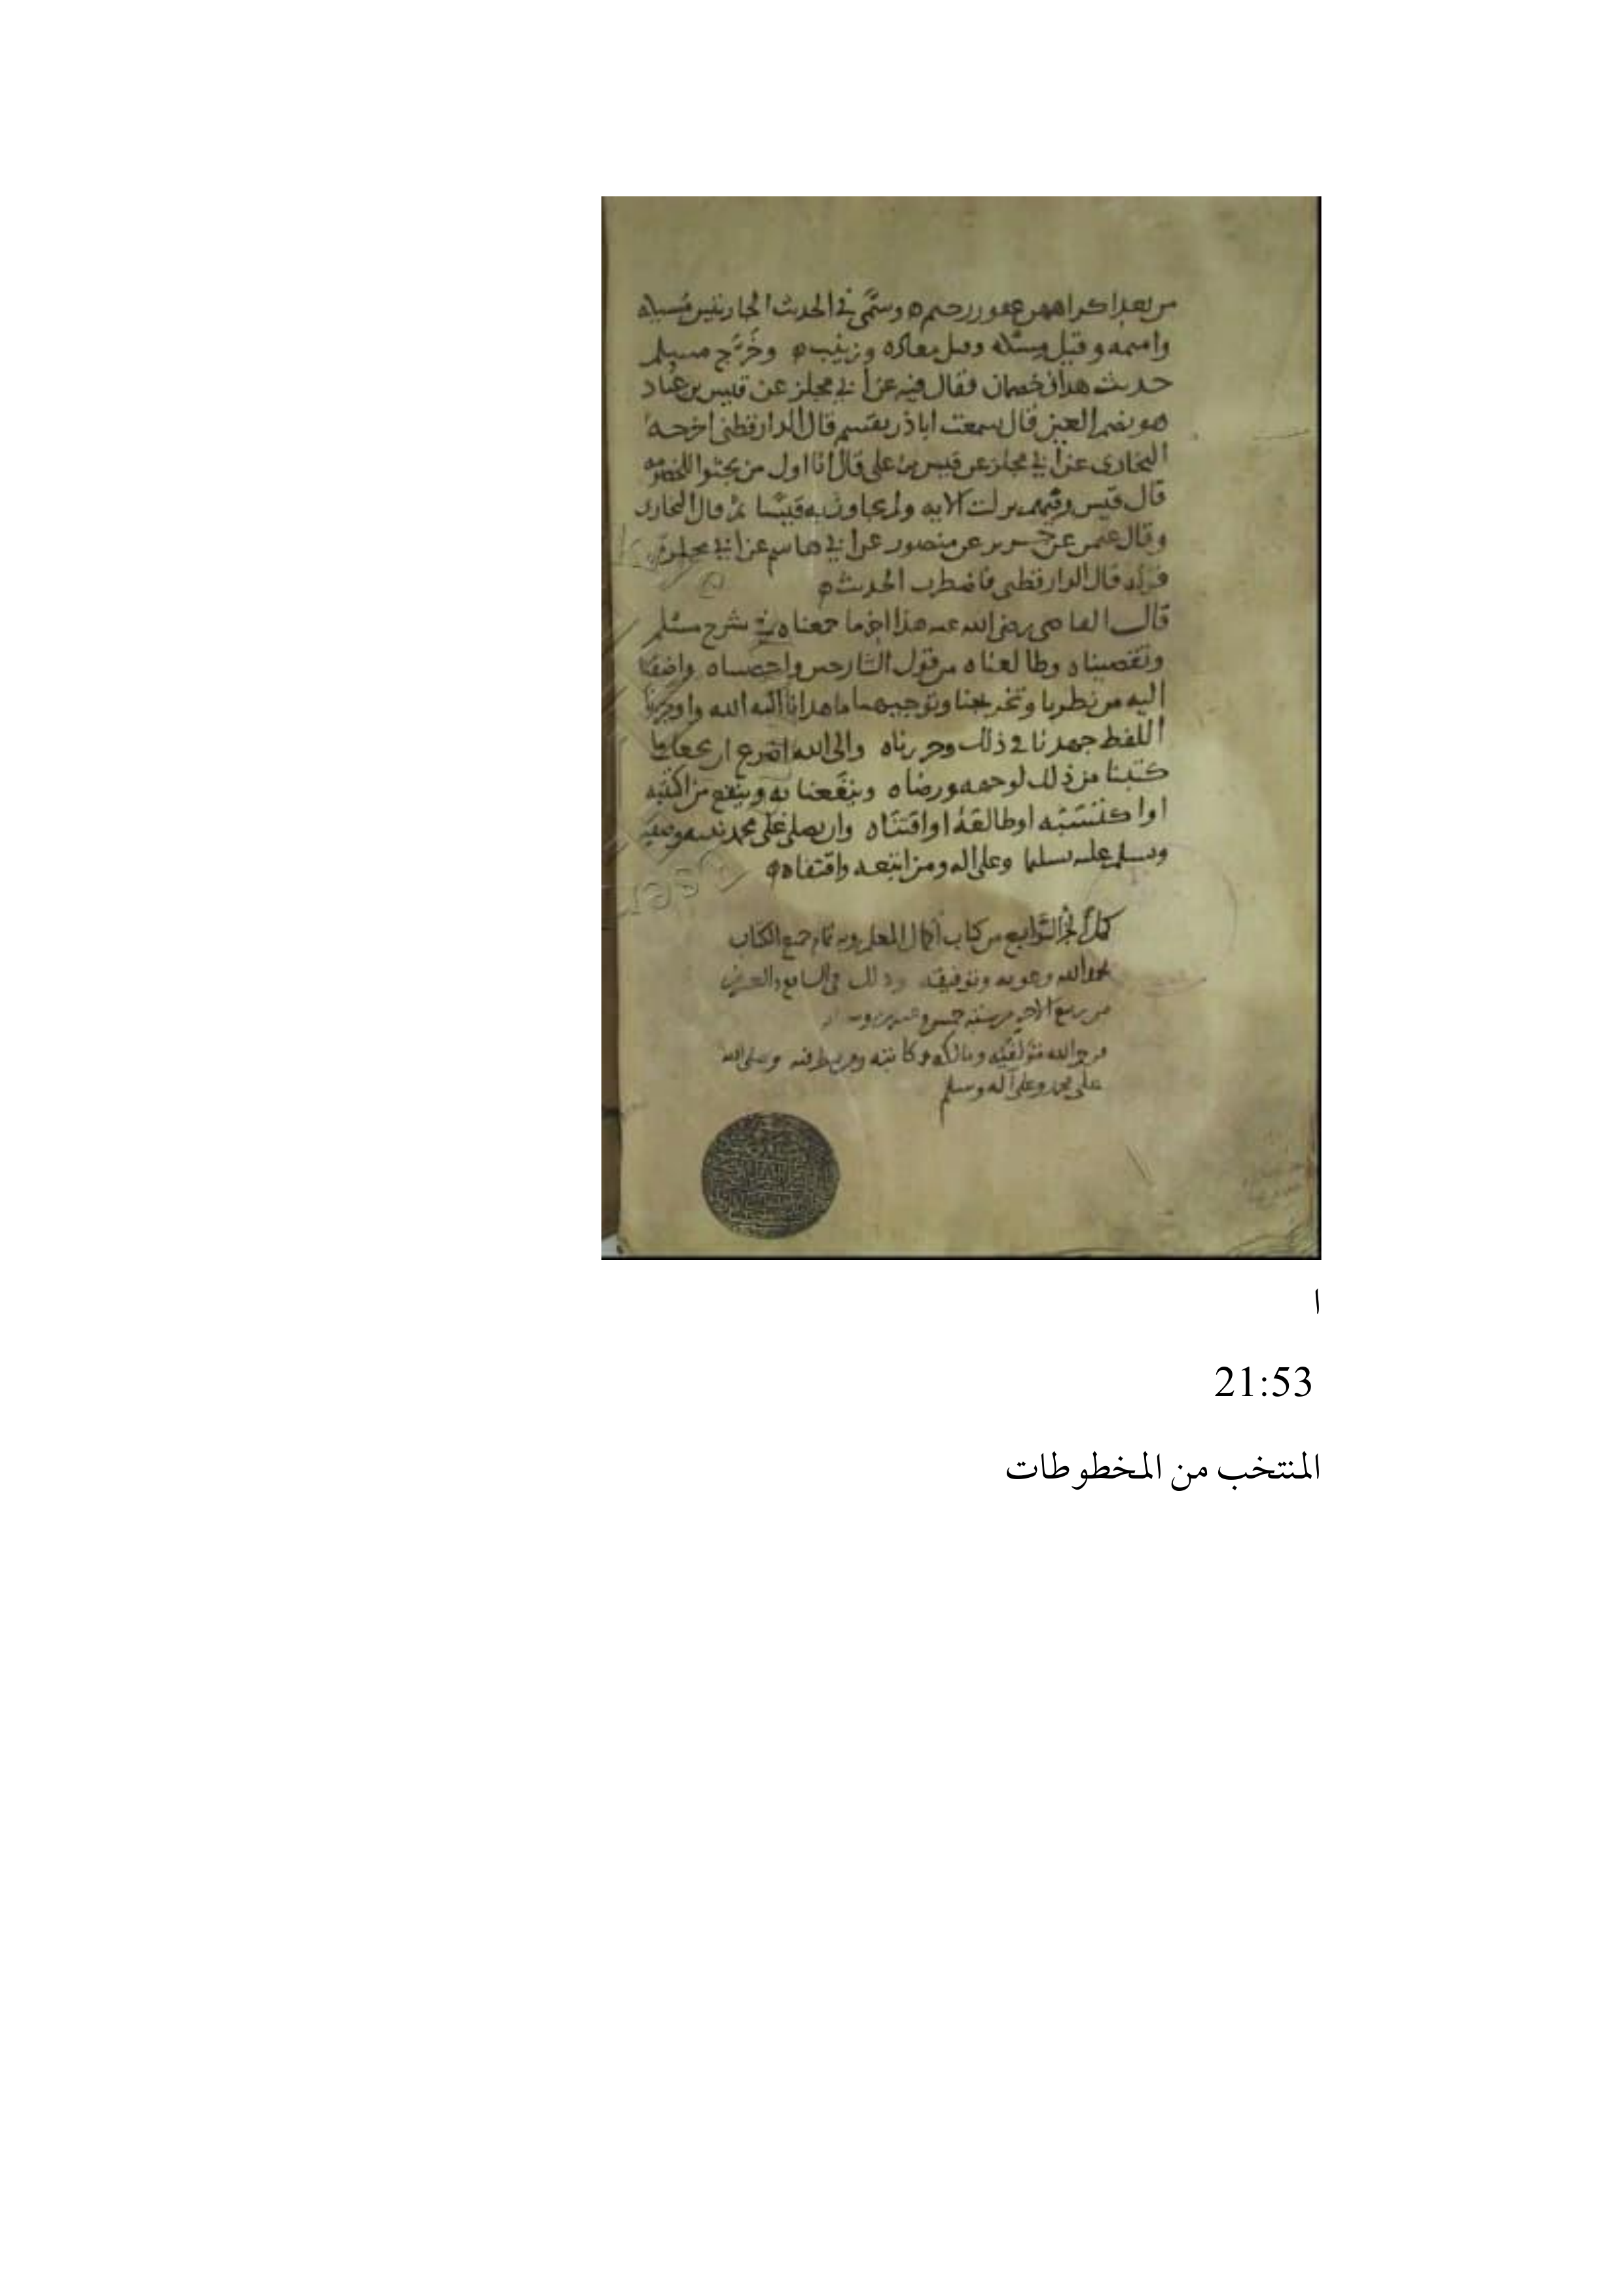 من بعد اكراههن غفور رحيم ه وسمى في الحديث الجاريتين مسيكة
واميمة وقيل مسيكه وقيل معاذه وزينب ه وخرج مسلم
حديث هذان خصمان فقال فيه عن أبي مجلز عن قيس بن عباد
هو بضم العين قال سمعت اباذر يقسم قال الدارقطني اخرجه
البخاري عن أبي مجلز عن قيس عن على قال انا اول من يجثوا للخصومه
قال قيس وفيهم نزلت الايه ولم يجاوز به قيسا ثم قال البخارى
وقال عثمن عن جرير عن منصور عن ابي هاشم عن ابي مجلز
قوله قال الدارقطنى فاضطرب الحديث ه
قال القاضى رضى الله عنه هذا اخر ما جمعناه في شرح مسلم
وتقصيناه وطالعناه من قول الشارحين واحصيناه واضفنا
اليه من نظرنا وتخريجنا وتوجيهنا ما هدانا اليه الله واوجزنا
اللفظ جهدنا في ذلك وحررناه والى الله اضرع ان يجعل ما
كتبنا من ذلك لوجهه ورضاه وينفعنا به وينفع من اكتتبه
او اكتسبه او طالعه او اقتناه وان يصلى على محمد نبيه وصفيه
وسلم عليه تسليما وعلى اله ومن اتبعه واقتفاه ه
كمل الجز الرابع من كتاب اكمال المعلم وبه تم جميع الكتاب
بحمد الله وعونه وتوفيقه وذلك في السابع والعشرين
من ربيع الاخر من سنه خمس وعشرين
فرحم الله مؤلفه ومالكه وكاتبه ومن نظر فيه وصلى الله
على محمد وعلى آله وسلم
ا
21:53
المنتخب من المخطوطات